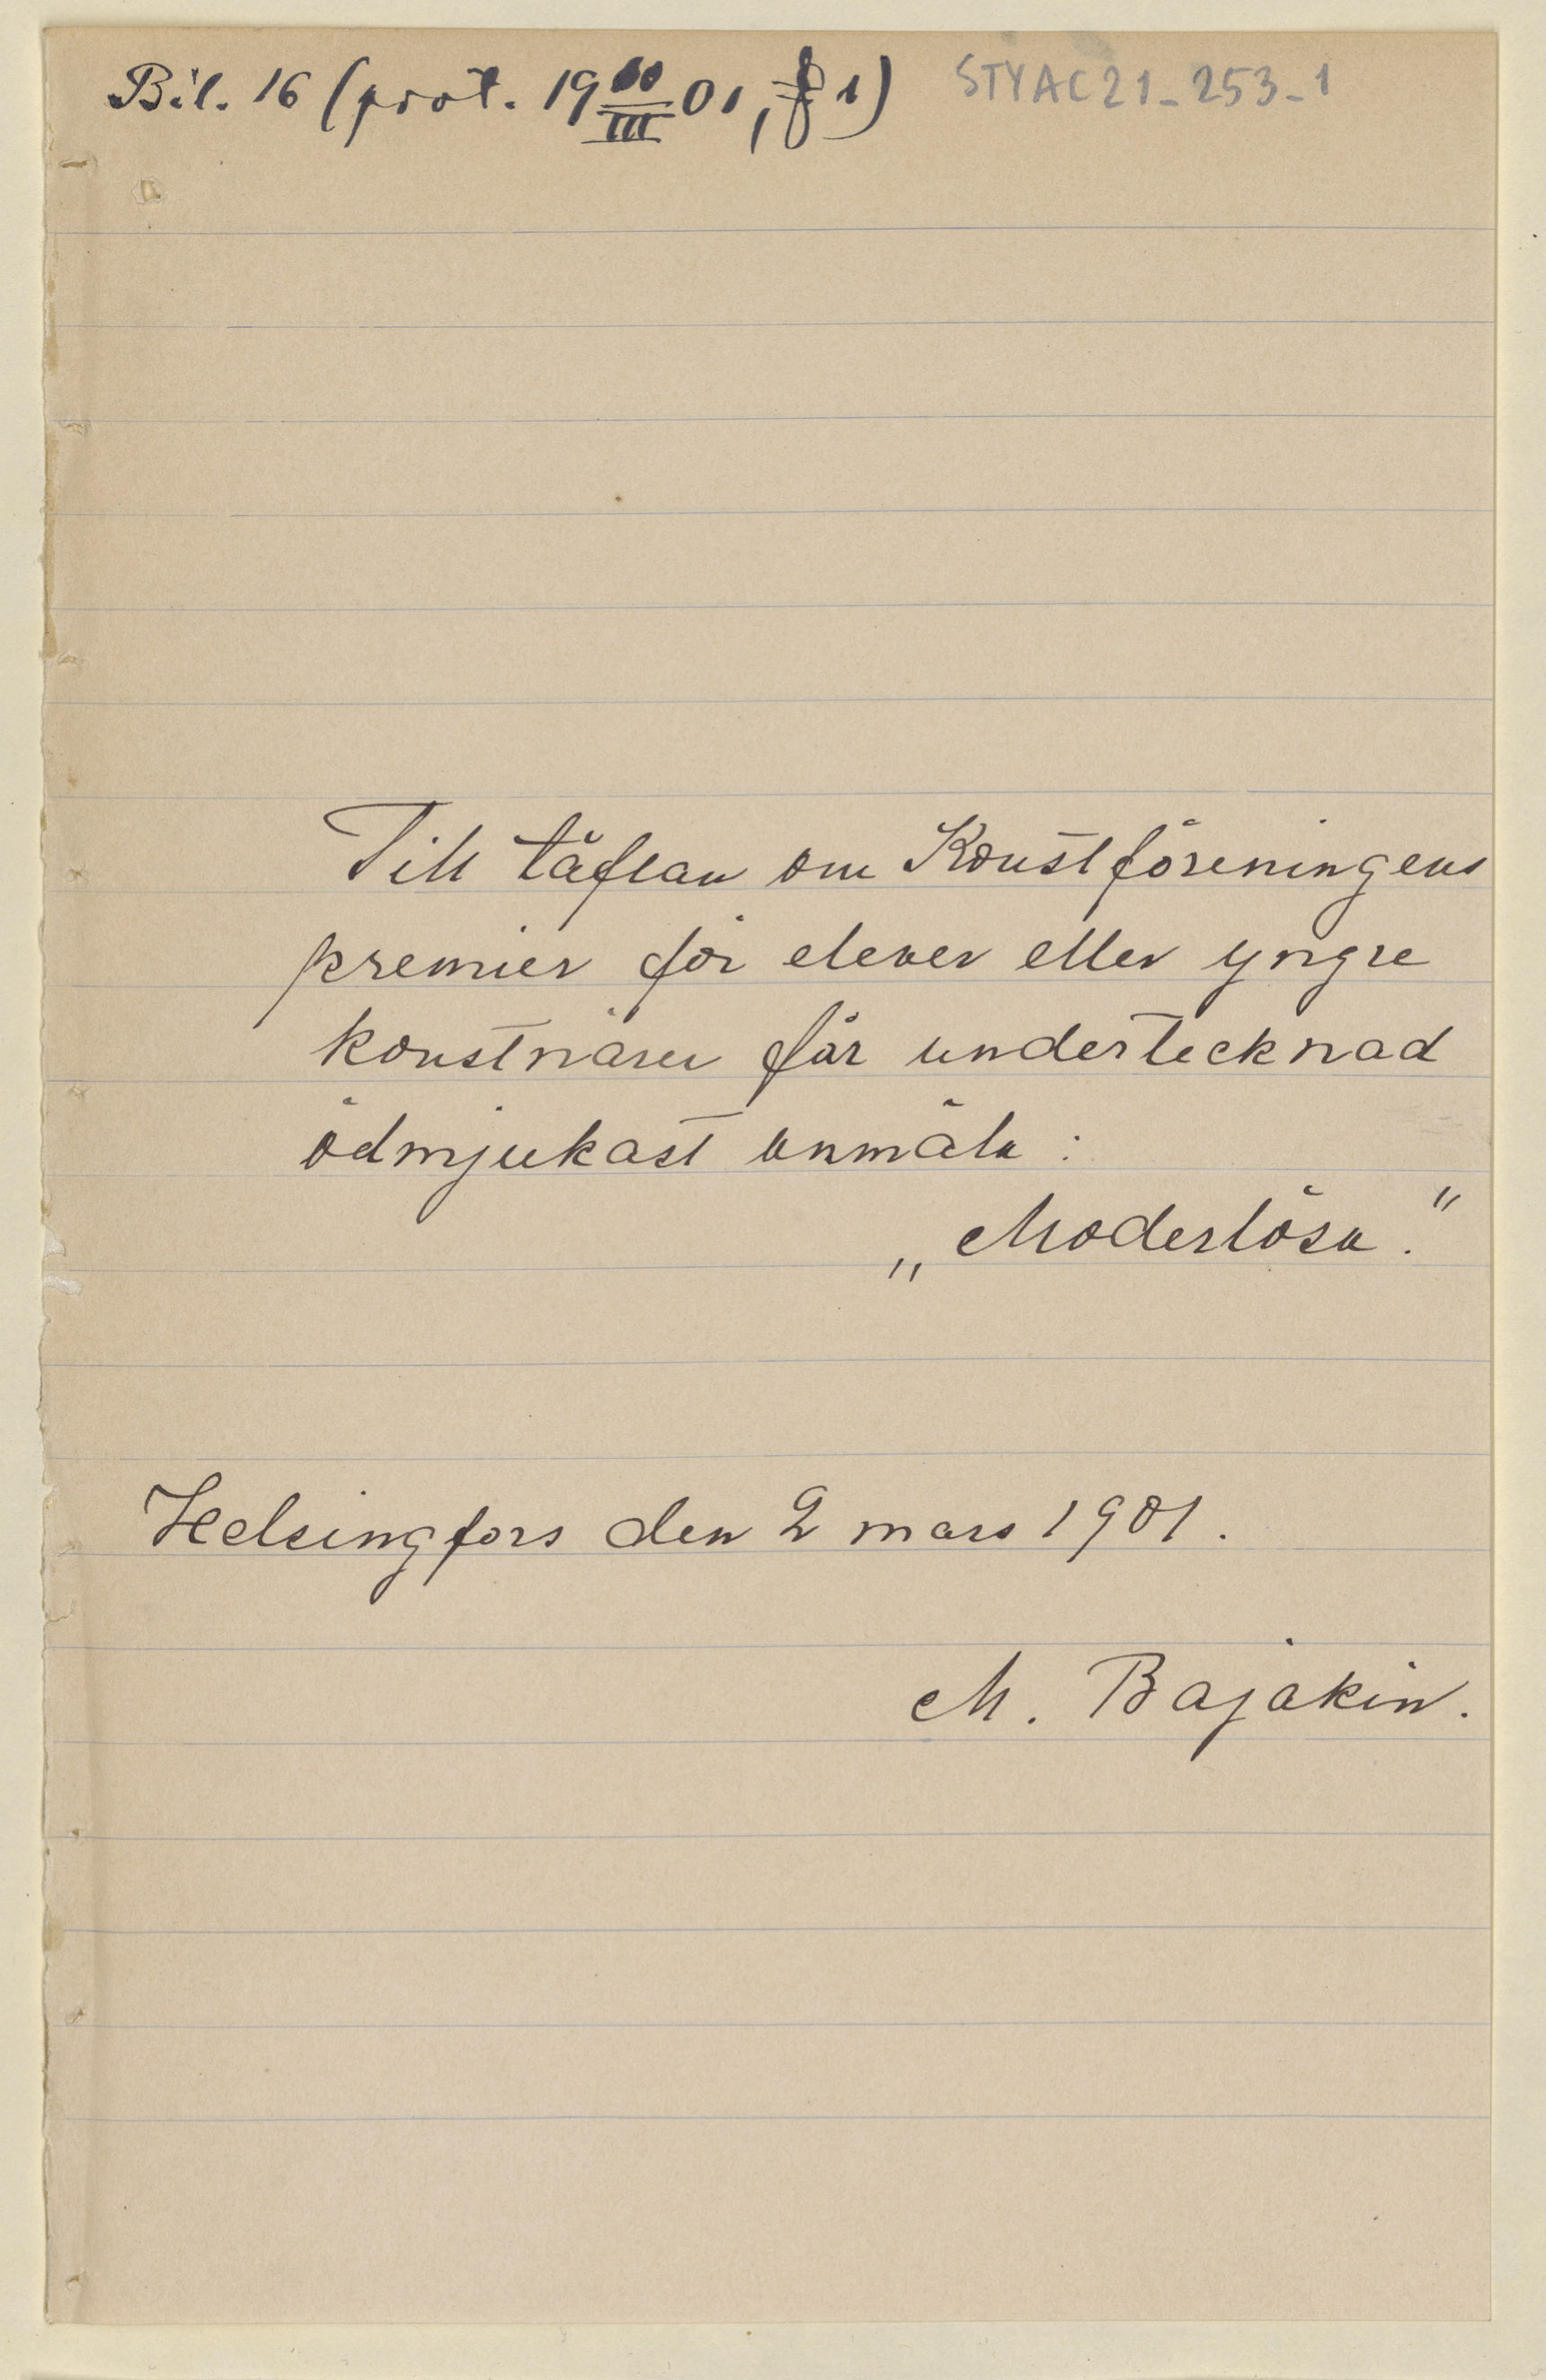 Bil. 16 (prot. 19 III 01, § 1)
STYAC21_253_1
Till täflan om Konstföreningens
premier för elever eller yngre
konstnärer får undertecknad
ödmjukast anmäla :
„Moderlösa."
Helsingfors den 2 mars 1901.
M. Bajakin.